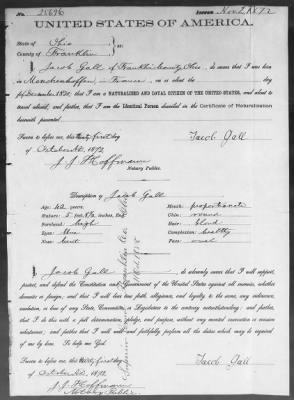 No. 28696 Issued Nov 2 1872
UNITED STATES OF AMERICA.
State of Ohio
County of Franklin ss:
I, Jacob Gall of Franklin County Ohio, do swear that I was born
in in France, on or about the day
of December 18 , that I am a NATURALIZED AND LOYAL CITIZEN OF THE UNITED STATES, and about to
travel abroad, and further, that I am the Identical Person described in the Certificate of Naturalization
herewith presented.
Sworn to before me, this thirty first day
of October A.D. 1872, Jacob Gall
J. J. Hoffmann
Notary Public.
Description of Jacob Gall
Age: 42 years Mouth: proportionate
Stature: 5 feet, 8 1/2 inches, Eng. Chin: round
Forehead: high Hair: blond
Eyes: blue Complexion: healthy
Nose: Face: oval
I, Jacob Gall, do solemnly swear that I will support,
protect, and defend the Constitution and Government of the United States against all enemies, whether
domestic or foreign; and that I will bear true faith, allegiance, and loyalty to the same, any ordinance,
resolution, or law of any State, Convention, or Legislature to the contrary notwithstanding; and further,
that I do this with a full determination, pledge, and purpose, without any mental reservation or evasion
whatsoever; and further, that I will well and faithfully perform all the duties which may be required
of me by law. So help me God.
Sworn to before me, this thirty first day Jacob Gall
of October A.D. 1872,
J. J. Hoffmann
Notary Public.